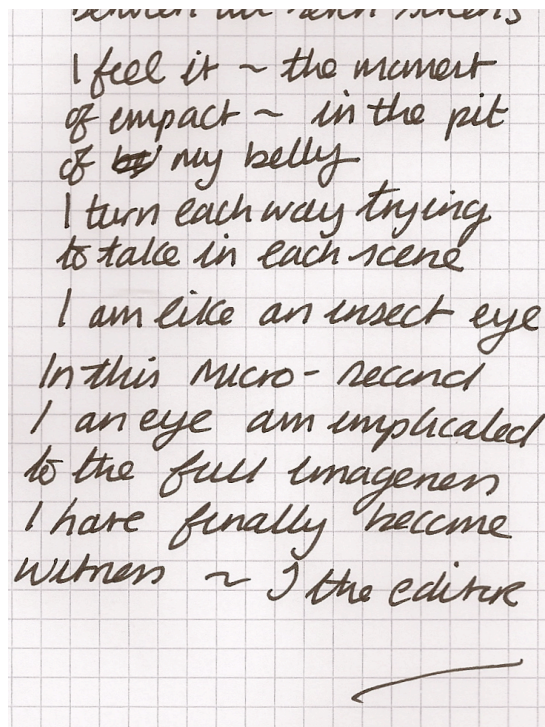 between
I feel it ~ the moment
of impact ~ in the pit
of my belly
I turn each way trying
to take in each scene
I am like an insect eye
In this micro-second
I an eye am implicated
to the full imageness
I have finally become
witness ~ I the